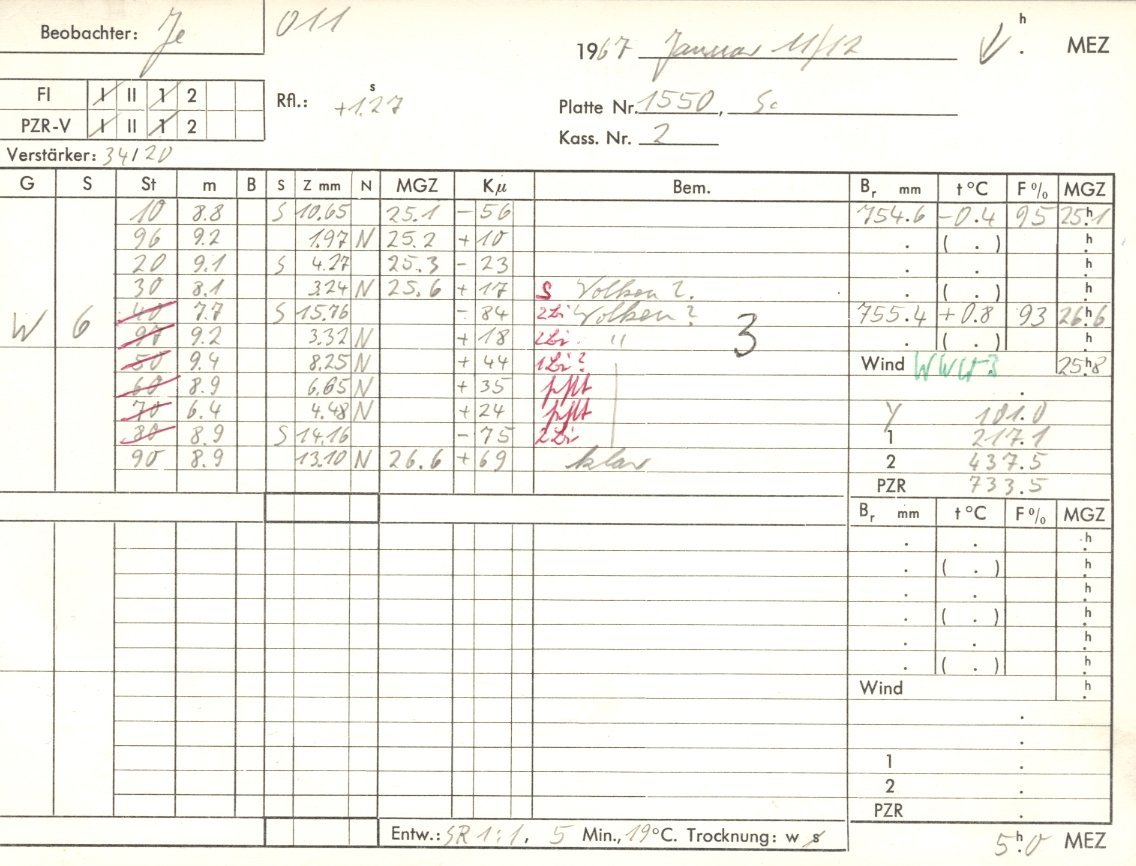 Beobachter: Je 011
1967 Januar 11/12 h . MEZ
FI I II 1 2
Rfl.: +1.27 s
Platte Nr. 1550,
PZR-V I II 1 2
Kass. Nr. 2
Verstärker: 34/20
G S St m B S Z mm N MGZ Kμ Bem. Br mm t °C F % MGZ
10 8.8 S 10.65 25.1 - 56 754.6 -0.4 95 25h.1
96 9.2 1.97 N 25.2 + 10 . ( . ) h.
20 9.1 S 4.27 25.3 - 23 . . h.
30 8.1 3.24 N 25.6 + 17 S Wolken ? . ( . ) h.
40 7.7 S 15.76 - 84 2Li Wolken ? 755.4 +0.8 93 26h.6
W 6 97 9.2 3.32 N + 18 2Li " 3 . ( . ) h.
50 9.4 8.25 N + 44 1Li ? Wind 25h.8
60 8.9 6.65 N + 35 .
70 6.4 4.48 N + 24 Y 101.0
80 8.9 S 14.16 - 75 2Li 1 217.1
90 8.9 13.10 N 26.6 + 69 klar 2 437.5
PZR 733.5
Br mm t °C F % MGZ
. . h.
. ( . ) h.
. . h.
. ( . ) h.
. . h.
. ( . ) h.
Wind h.
.
.
1 .
2 .
PZR .
Entw.: SR 1:1, 5 Min., 19°C. Trocknung: w s 5h.0 MEZ